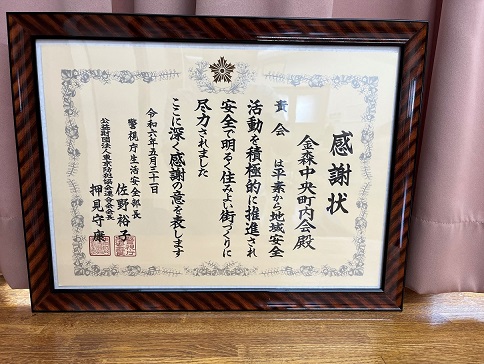 感謝状
金森中央町内会殿
貴会は平素から地域安全
活動を積極的に推進され
安全で明るく住みよい街づくりに
尽力されました
ここに深く感謝の意を表します
令和六年五月三十一日
警視庁生活安全部長
佐野裕子
公益財団法人東京防犯協会連合会会長
押見守康